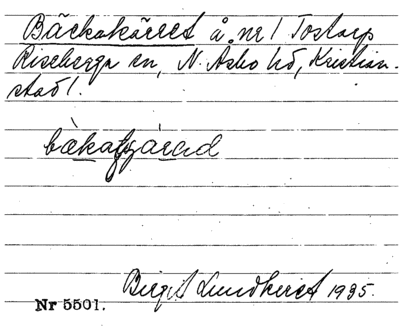 Bäckakäret å. nr 1 Tostarp
Riseberga sn, N. Åsbo hd, Kristian-
stad l.
Birgit Lundkvist 1935.
Nr 5501.